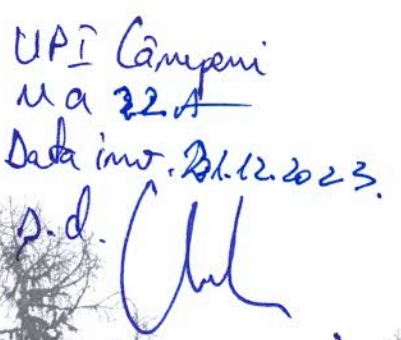 UPI Câmpeni
u a 22 A
Data inv. 31.12.2023.
p.d.